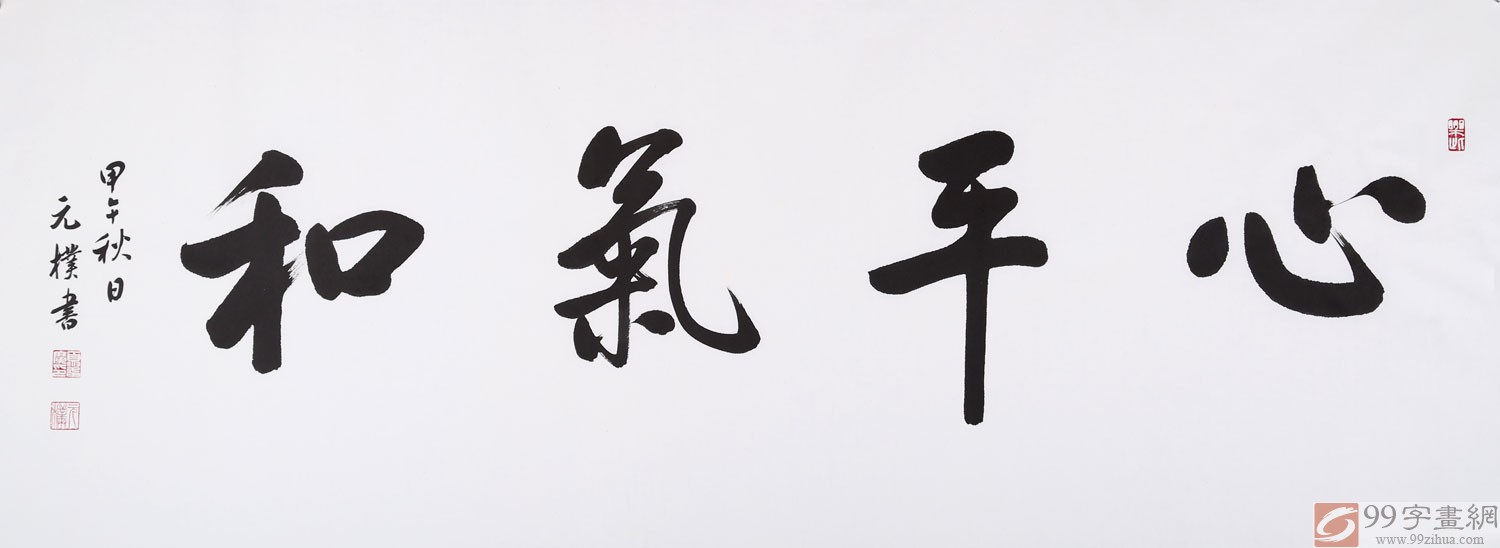 心平氣和
甲午秋日
元樸書
99字畫網
www.99zihua.com